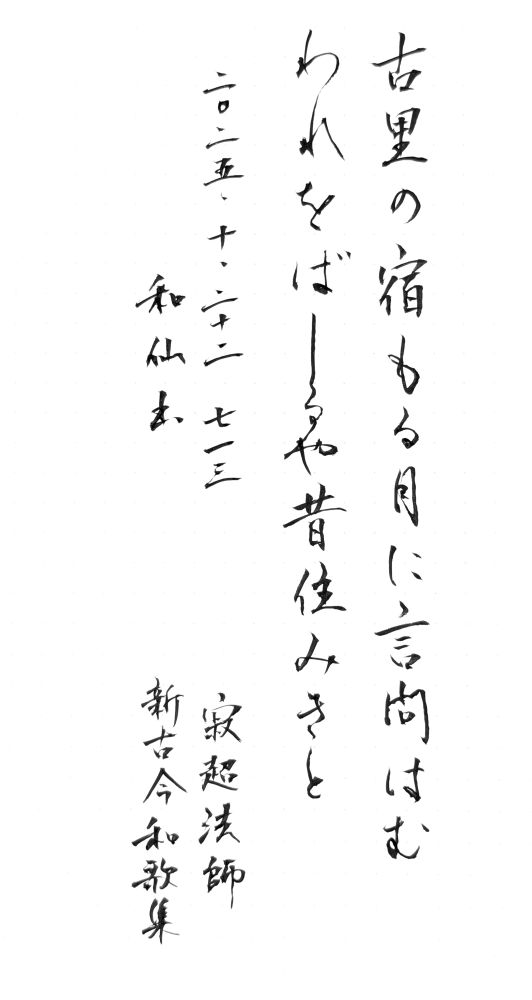 古里の宿もる月に言問はむ
われをばしるや昔住みきと
二〇二五、十、二十二 七一三
寂超法師
和仙书
新古今和歌集